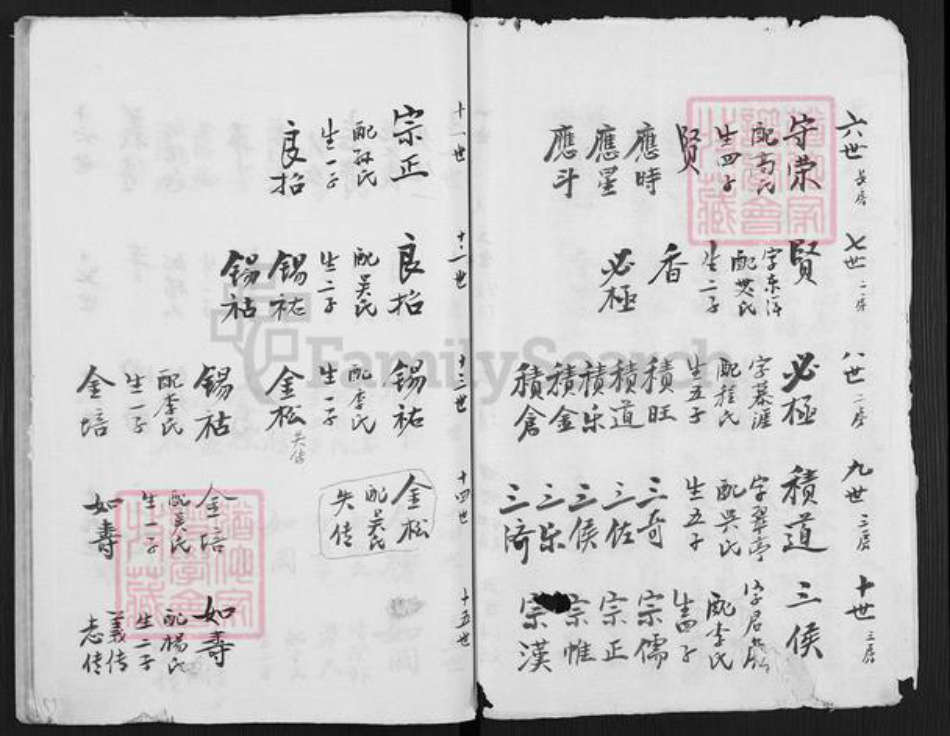 六世 長房
守荣
配高氏
生四子
賢
應時
應星
應斗
七世 二房
賢
字东洋
配樊氏
生二子
香
必極
八世 二房
必極
字慕涯
配程氏
生五子
積旺
積道
積乐
積金
積倉
九世 三房
積道
字翠亭
配吴氏
生五子
三奇
三佐
三侯
三乐
三済
十世 三房
三侯
字君
配李氏
生四子
宗儒
宗正
宗惟
宗漢
十一世
宗正
配孙氏
生一子
良招
十二世
良招
配吴氏
生二子
錫祐
錫祜
十三世
錫祐
配李氏
生一子
金松 失传
錫祜
配李氏
生一子
金培
十四世
金松
配吴氏
失传
金培
配吴氏
生一子
如寿
十五世
如寿
配楊氏
生二子
義传
志传
FamilySearch